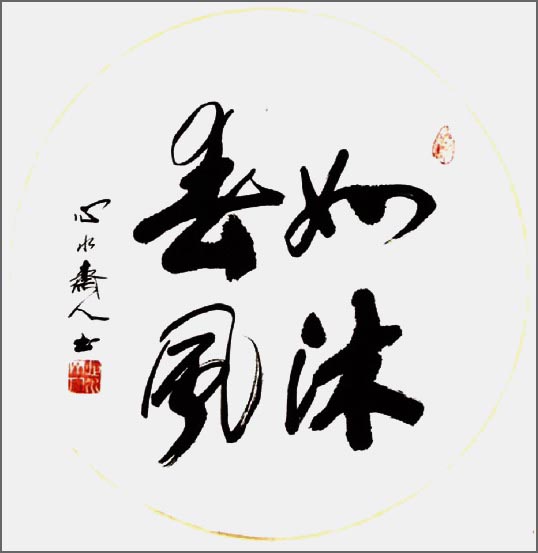 如沐
春風
心水齋人书